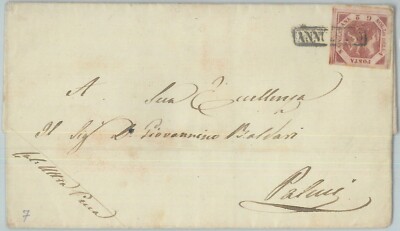 ANN
POSTA
G. 2
A Sua Eccellenza
Il Sig. D. Giovannino Baldari
Palmi
7